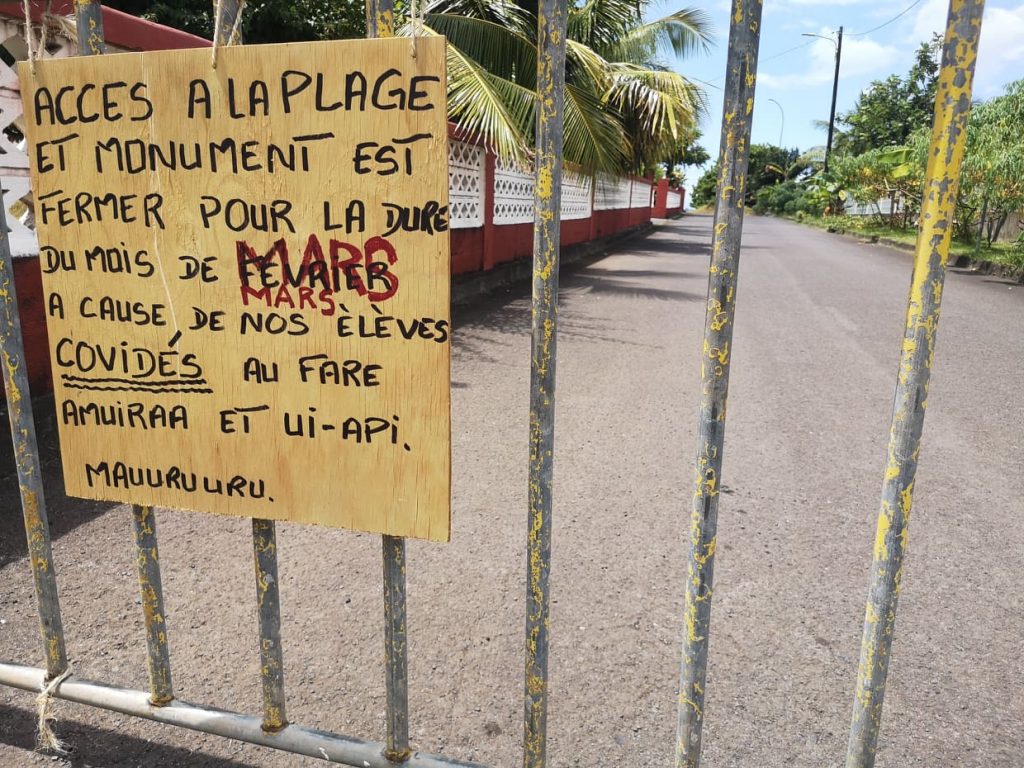 ACCES A LA PLAGE
ET MONUMENT EST
FERMER POUR LA DURE
DU MOIS DE FEVRIER MARS
MARS
A CAUSE DE NOS ÈLÈVES
COVIDÉS AU FARE
AMUIRAA ET UI-API.
MAUURUURU.